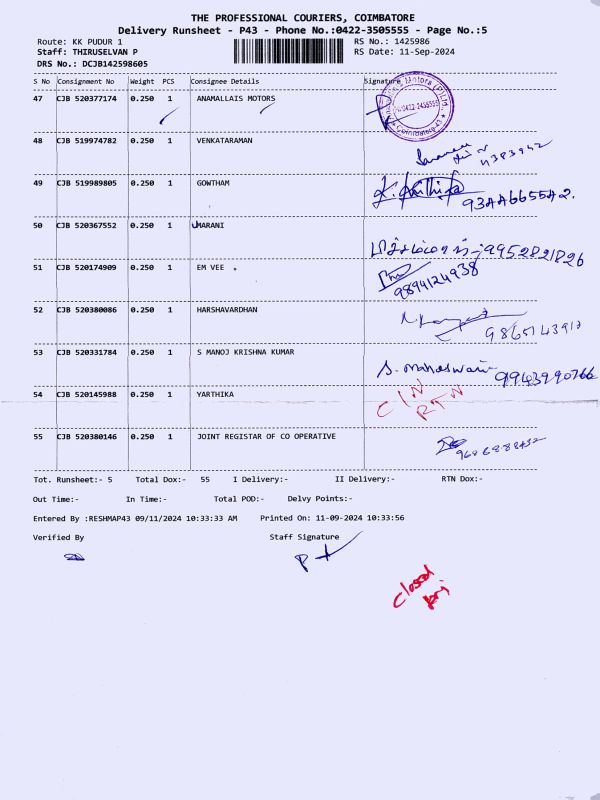 THE PROFESSIONAL COURIERS, COIMBATORE
Delivery Runsheet - P43 - Phone No.:0422-3505555 - Page No.:5
Route: KK PUDUR 1 RS No.: 1425986
Staff: THIRUSELVAN P RS Date: 11-Sep-2024
DRS No.: DCJB142598605
S No Consignment No Weight PCS Consignee Details Signature
47 CJB 520377174 0.250 1 ANAMALLAIS MOTORS
48 CJB 519974782 0.250 1 VENKATARAMAN
49 CJB 519989805 0.250 1 GOWTHAM
50 CJB 520367552 0.250 1 HARANI 9952821826
51 CJB 520174909 0.250 1 EM VEE 9894124938
52 CJB 520380086 0.250 1 HARSHAVARDHAN
53 CJB 520331784 0.250 1 S MANOJ KRISHNA KUMAR S. Maheswari 9943990766
54 CJB 520145988 0.250 1 YARTHIKA C/N RTN
55 CJB 520380146 0.250 1 JOINT REGISTAR OF CO OPERATIVE
Tot. Runsheet:- 5 Total Dox:- 55 I Delivery:- II Delivery:- RTN Dox:-
Out Time:- In Time:- Total POD:- Delvy Points:-
Entered By :RESHMAP43 09/11/2024 10:33:33 AM Printed On: 11-09-2024 10:33:56
Verified By Staff Signature
Closed